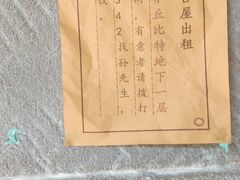 屋出租
丘比特地下一层
,有意者请拨打
342找孙先生,